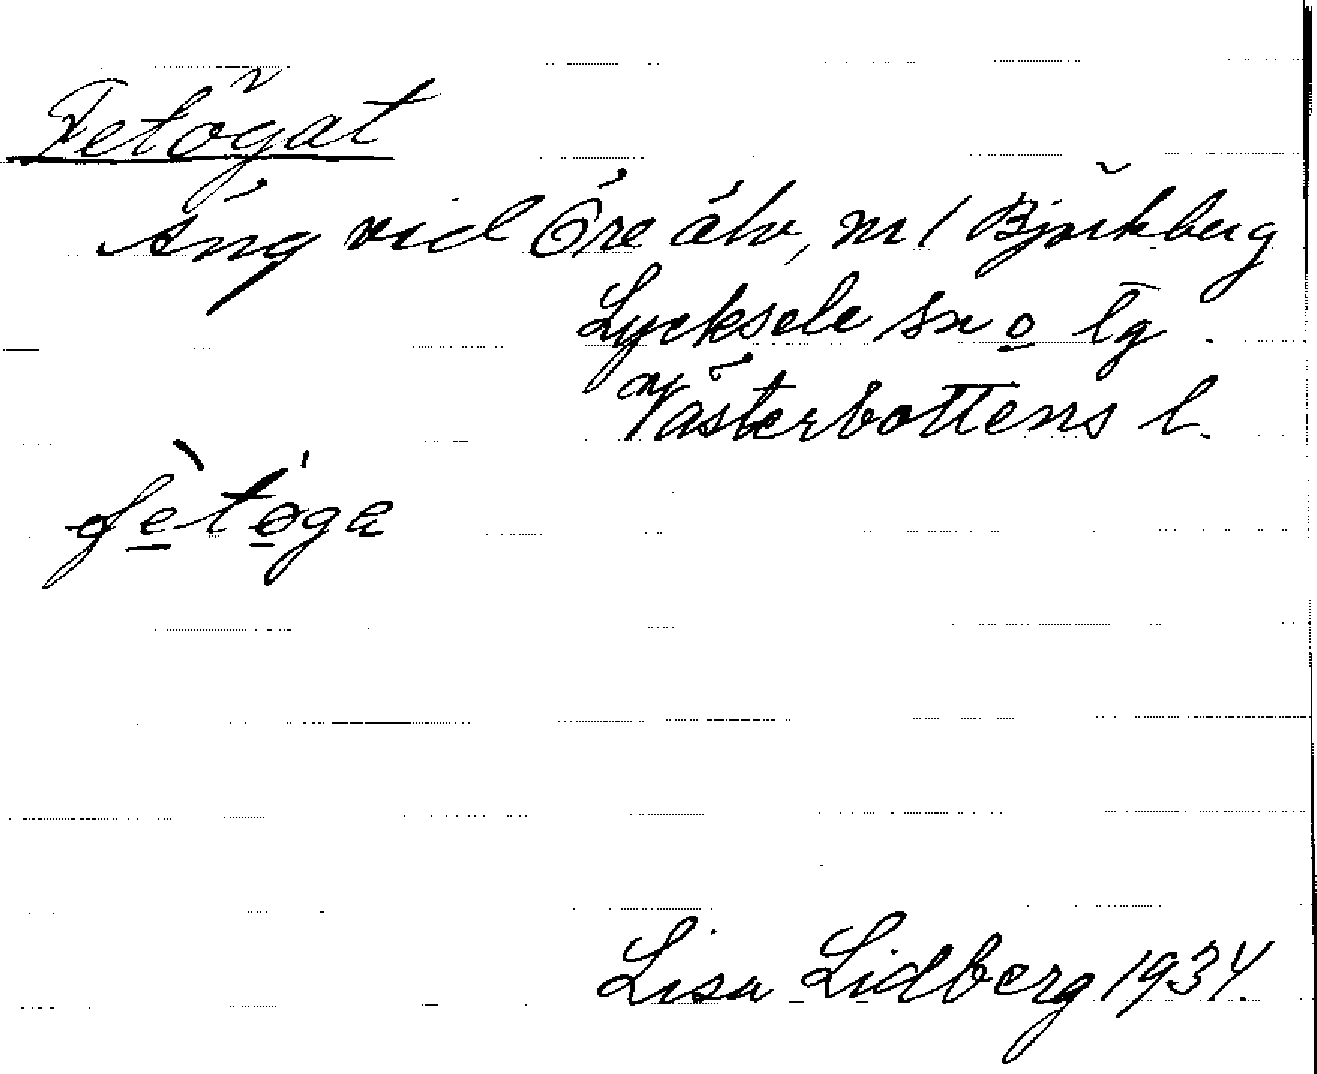 Fetögat
Äng vid Öre älv, nr 1 Björkberg
Lycksele sn o lg.
Västerbottens l.
fètö́ga
Lisa Lidberg 1934.